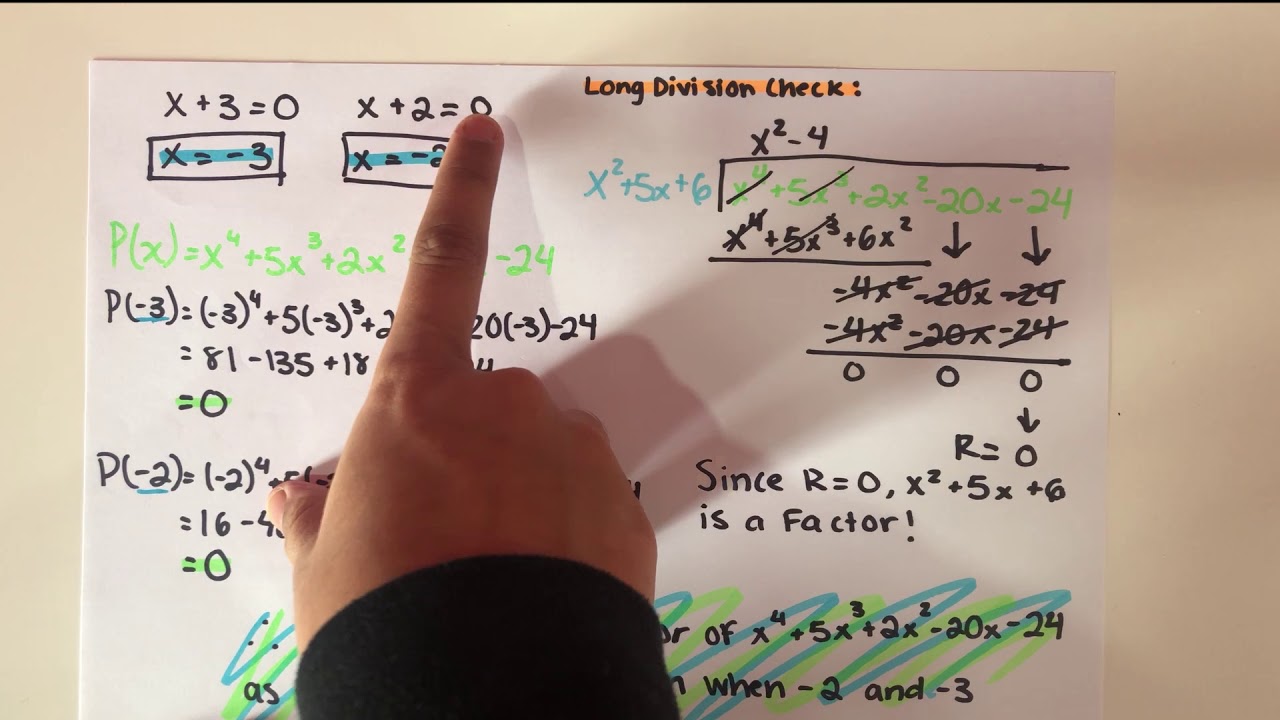 x + 3 = 0
x + 2 = 0
x = -3
x = -2
P(x) = x⁴ + 5x³ + 2x² -24
P(-3) = (-3)⁴ + 5(-3)³ + 20(-3) - 24
= 81 - 135 + 18
= 0
P(-2) = (-2)⁴
= 16 -
= 0
Long Division Check:
x² - 4
x² + 5x + 6 x⁴ + 5x³ + 2x² - 20x - 24
x⁴ + 5x³ + 6x²
-4x² - 20x - 24
-4x² - 20x - 24
0 0 0
R = 0
Since R = 0, x² + 5x + 6
is a Factor!
∴ of x⁴ + 5x³ + 2x² - 20x - 24
as when -2 and -3